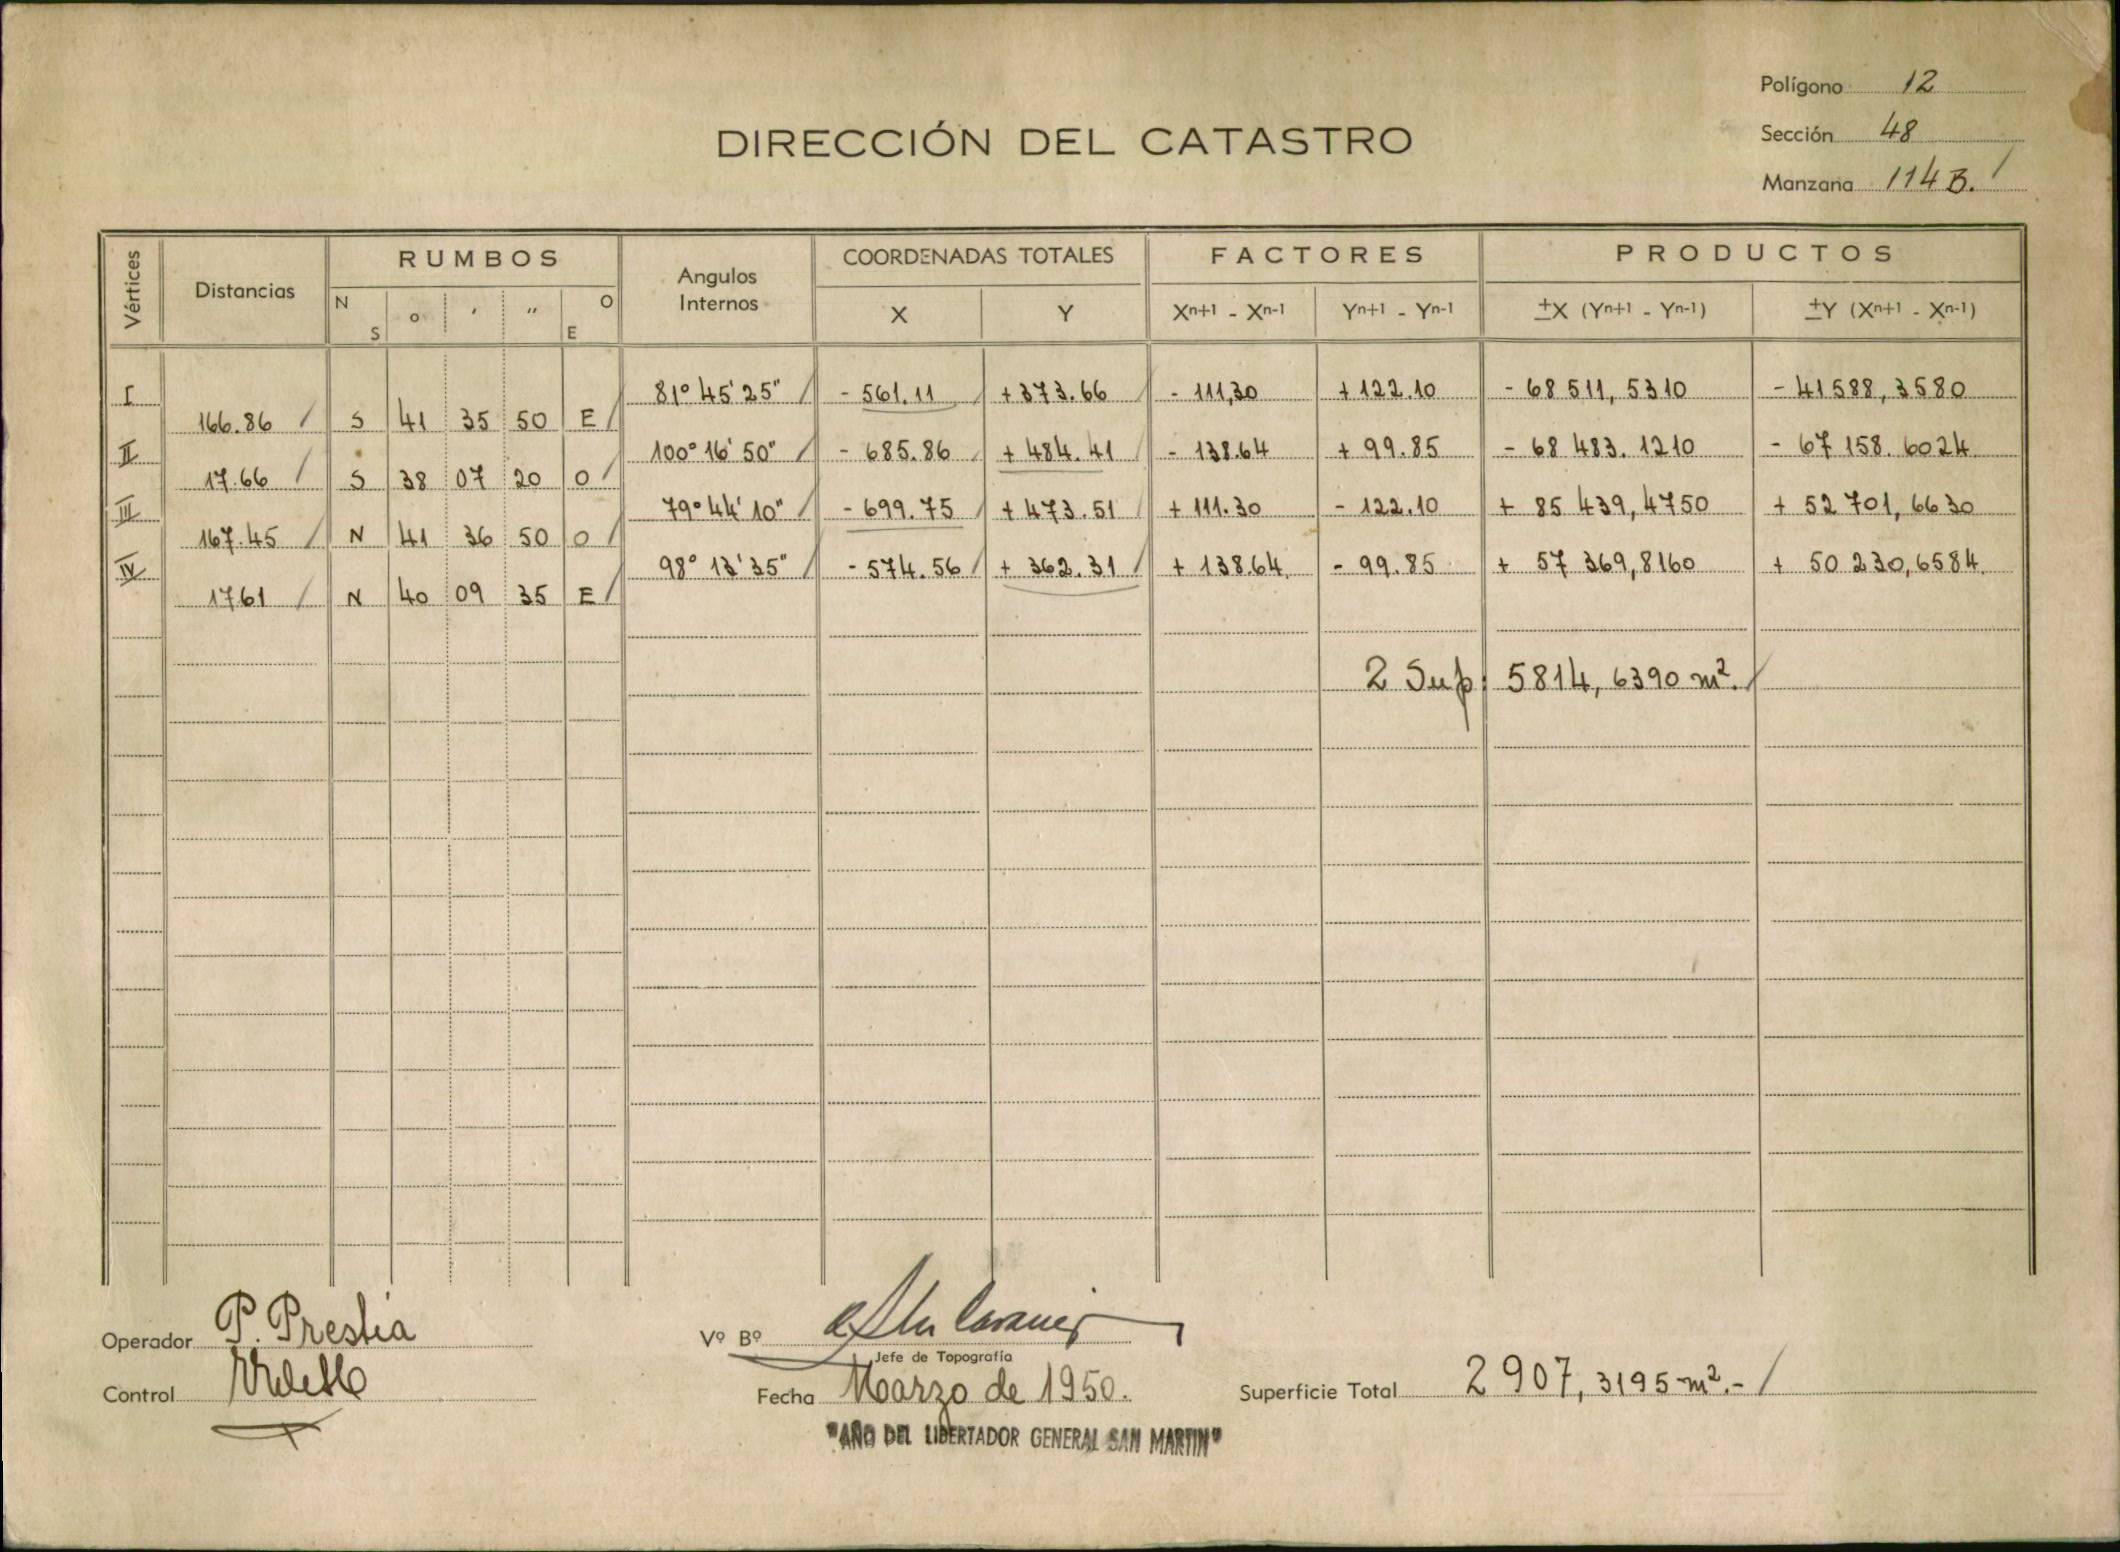 Polígono 12
DIRECCIÓN DEL CATASTRO
Sección 48
Manzana 114 B.
Vértices Distancias RUMBOS Angulos Internos COORDENADAS TOTALES FACTORES PRODUCTOS
N S o ' " O E X Y Xn+1 - Xn-1 Yn+1 - Yn-1 ±X (Yn+1 - Yn-1) ±Y (Xn+1 - Xn-1)
I 81° 45' 25" - 561.11 + 373.66 - 111,30 + 122.10 - 68 511, 5310 - 41588, 3580
166.86 S 41 35 50 E
II 100° 16' 50" - 685.86 + 484.41 - 138.64 + 99.85 - 68 483. 1210 - 67 158. 6024
17.66 S 38 07 20 O
III 79° 44' 10" - 699.75 + 473.51 + 111.30 - 122.10 + 85 439, 4750 + 52 701, 6630
167.45 N 41 36 50 O
IV 98° 13' 35" - 574.56 + 362.31 + 138.64 - 99.85 + 57 369,8160 + 50 230,6584
17.61 N 40 09 35 E
2 Sup: 5814, 6390 m².
Operador P. Prestia
Vº Bº
Jefe de Topografía
Control
Fecha Marzo de 1950.
Superficie Total 2907, 3195 m².-
"AÑO DEL LIBERTADOR GENERAL SAN MARTIN"